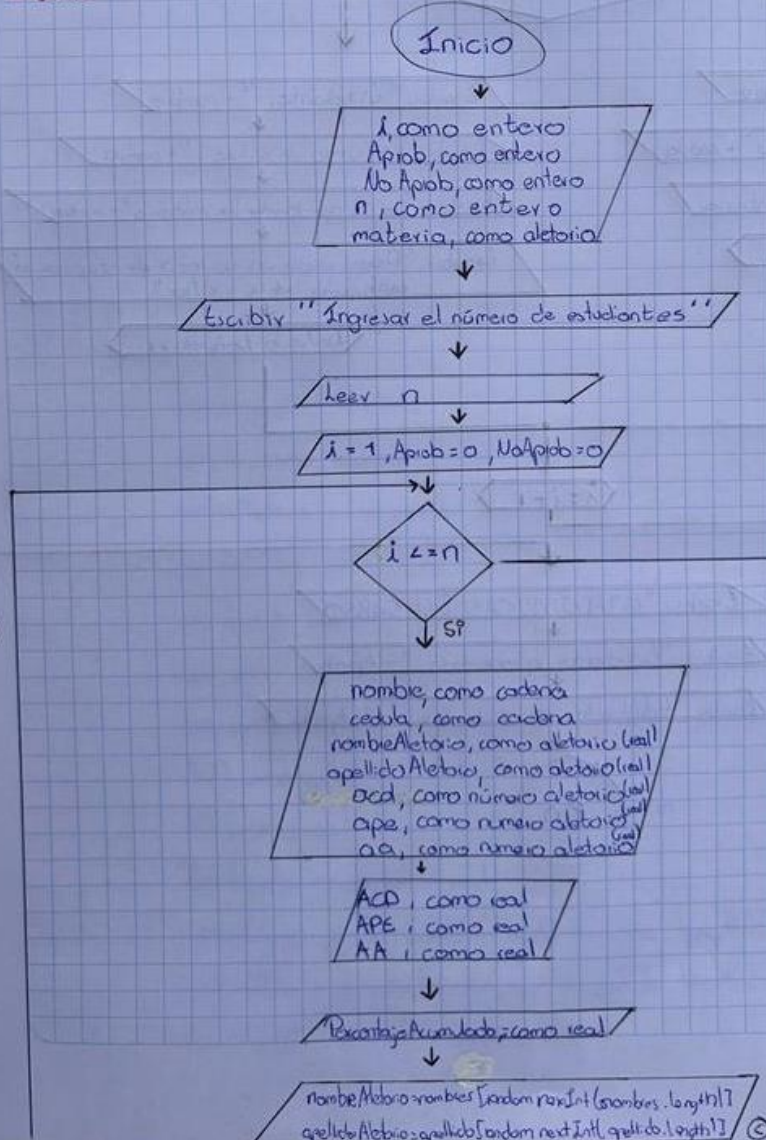 Inicio
i, como entero
Aprob, como entero
No Aprob, como entero
n, como entero
materia, como aletorio
Escribir "Ingresar el número de estudiantes"
Leer n
i = 1, Aprob = 0, NoAprob = 0
i <= n
Si
nombre, como cadena
cedula, como cadena
nombreAletorio, como aletorio (real)
apellidoAletorio, como aletorio (real)
acd, como número aletorio (real)
ape, como numero aletorio (real)
aa, como numero aletorio (real)
ACD, como real
APE, como real
AA, como real
PorcentajeAcumulado, como real
nombreAletorio=nombres[random.nextInt(nombres.length)]
apellidoAletorio=apellido[random.nextInt(apellido.length)]